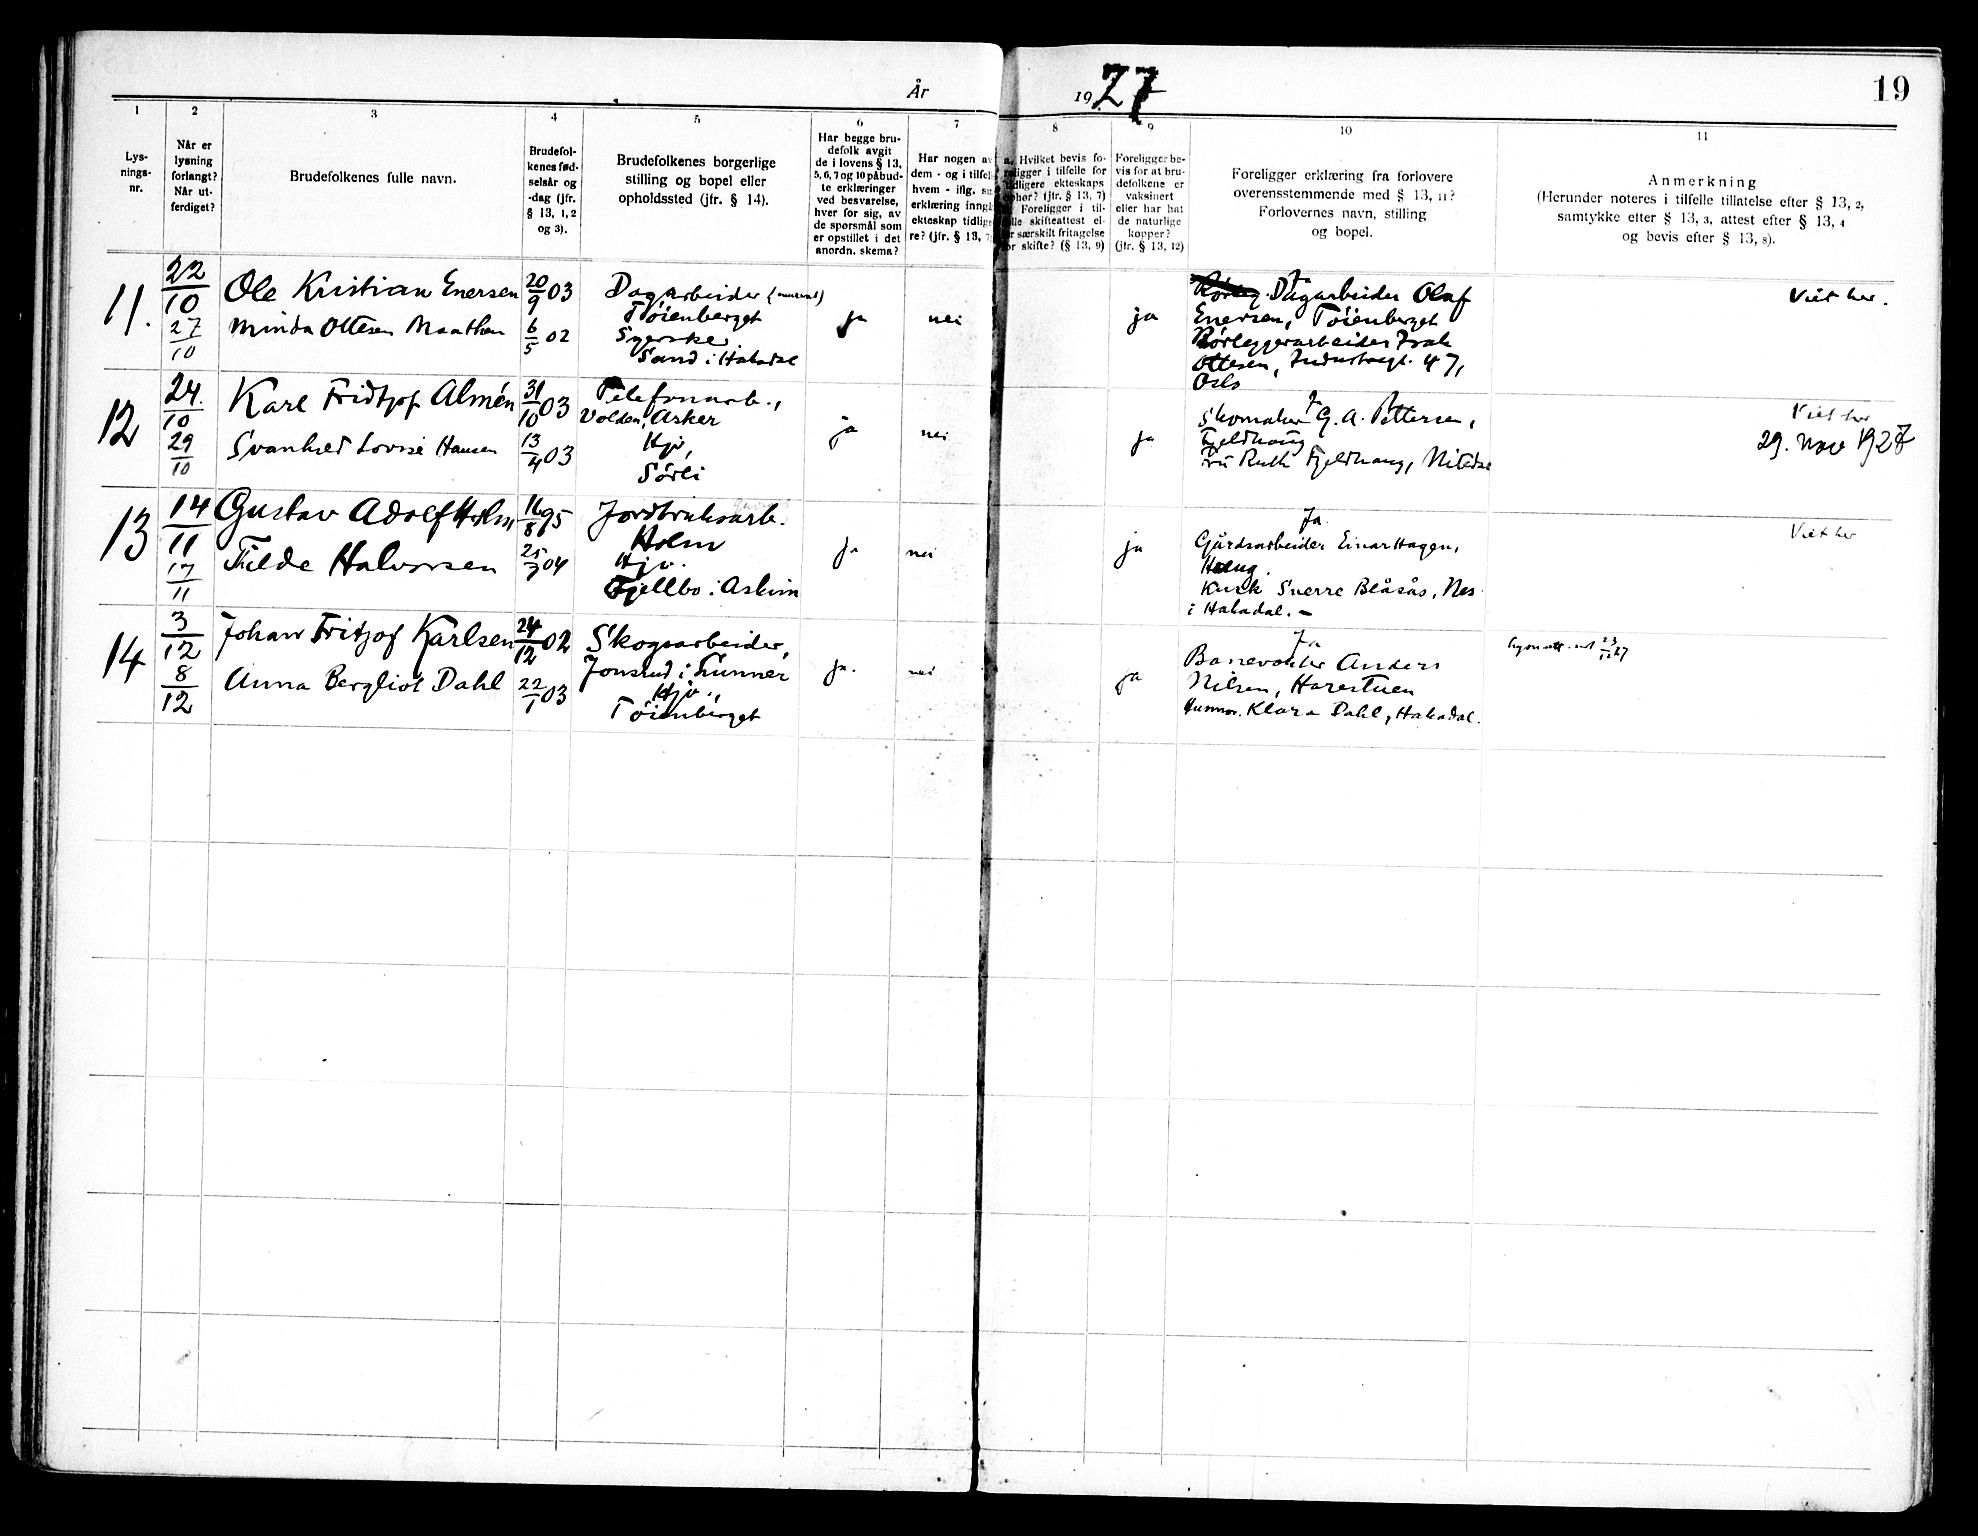 År 1927
19
1
2
3
4
5
6
7
8
9
10
11
Lys-
nings-
nr.
Når er
lysning
forlangt?
Når ut-
ferdiget?
Brudefolkenes fulle navn.
Brudefol-
kenes fød-
selsår og
-dag (jfr.
§ 13, 1, 2
og 3).
Brudefolkenes borgerlige
stilling og bopel eller
opholdssted (jfr. § 14).
Har begge bru-
defolk avgit
de i lovens § 13,
5, 6, 7 og 10 påbud-
te erklæringer
ved besvarelse,
hver for sig, av
de spørsmål som
er opstillet i det
anordn. skema?
Har nogen av
dem - og i tilfel
hvem - iflg. si
erklæring inngå
ekteskap tidlige
re? (jfr. § 13, 7
a. Hvilket bevis fo-
religger i tilfelle for
tidligere ekteskaps
ophør? (jfr. § 13, 7)
Foreligger i til-
elle skifteattest el-
r særskilt fritagelse
or skifte? (§ 13, 9)
Foreligger be-
vis for at bru-
defolkene er
vaksinert
eller har hat
de naturlige
kopper?
(jfr. § 13, 12)
Foreligger erklæring fra forlovere
overensstemmende med § 13, 11?
Forlovernes navn, stilling
og bopel.
Anmerkning
(Herunder noteres i tilfelle tillatelse efter § 13, 2,
samtykke efter § 13, 3, attest efter § 13, 4
og bevis efter § 13, 8).
11.
22/10
27/10
Ole Kristian Enersen
Minda Ottesen Maathen
20/9 03
6/5 02
Dagarbeider
Tøienberget
Syerske
Sand i Hakadal
ja
nei
ja
Dagarbeider Olaf
Enersen, Tøienberget
Rørleggerarbeider Isak
Ottesen, Industrigt. 47,
Oslo
Viet her.
12
24./10
29/10
Karl Fridtjof Almén
Svanhild Lovise Hansen
31/10 03
13/4 03
Telefonarb.,
Volden, Asker
Hjv,
Sørli
ja
nei
ja
Ja
Skomaker G. A. Pettersen,
Fjeldhaug
Fru Ruth Fjeldhaug, Nitedal
Viet her
29. nov 1927
13
14/11
17/11
Gustav Adolf Holm
Tilde Halvorsen
16/8 95
25/7 04
Jordbruksarb.
Holm
Hjv.
Fjellbo i Askim
Ja
nei
ja
Ja.
Gårdsarbeider Einar Hagen,
Haug.
Kusk Sverre Blåsås, Nes
i Hakadal. –
Viet her
14
3/12
8/12
Johan Fritjof Karlsen
Anna Bergliot Dahl
24/12 02
22/1 03
Skogsarbeider,
Jonsrud i Lunner
Hjv.,
Tøienberget
ja.
nei
ja
Ja
Banevokter Anders
Nilsen, Harestuen
Klara Dahl, Hakadal.